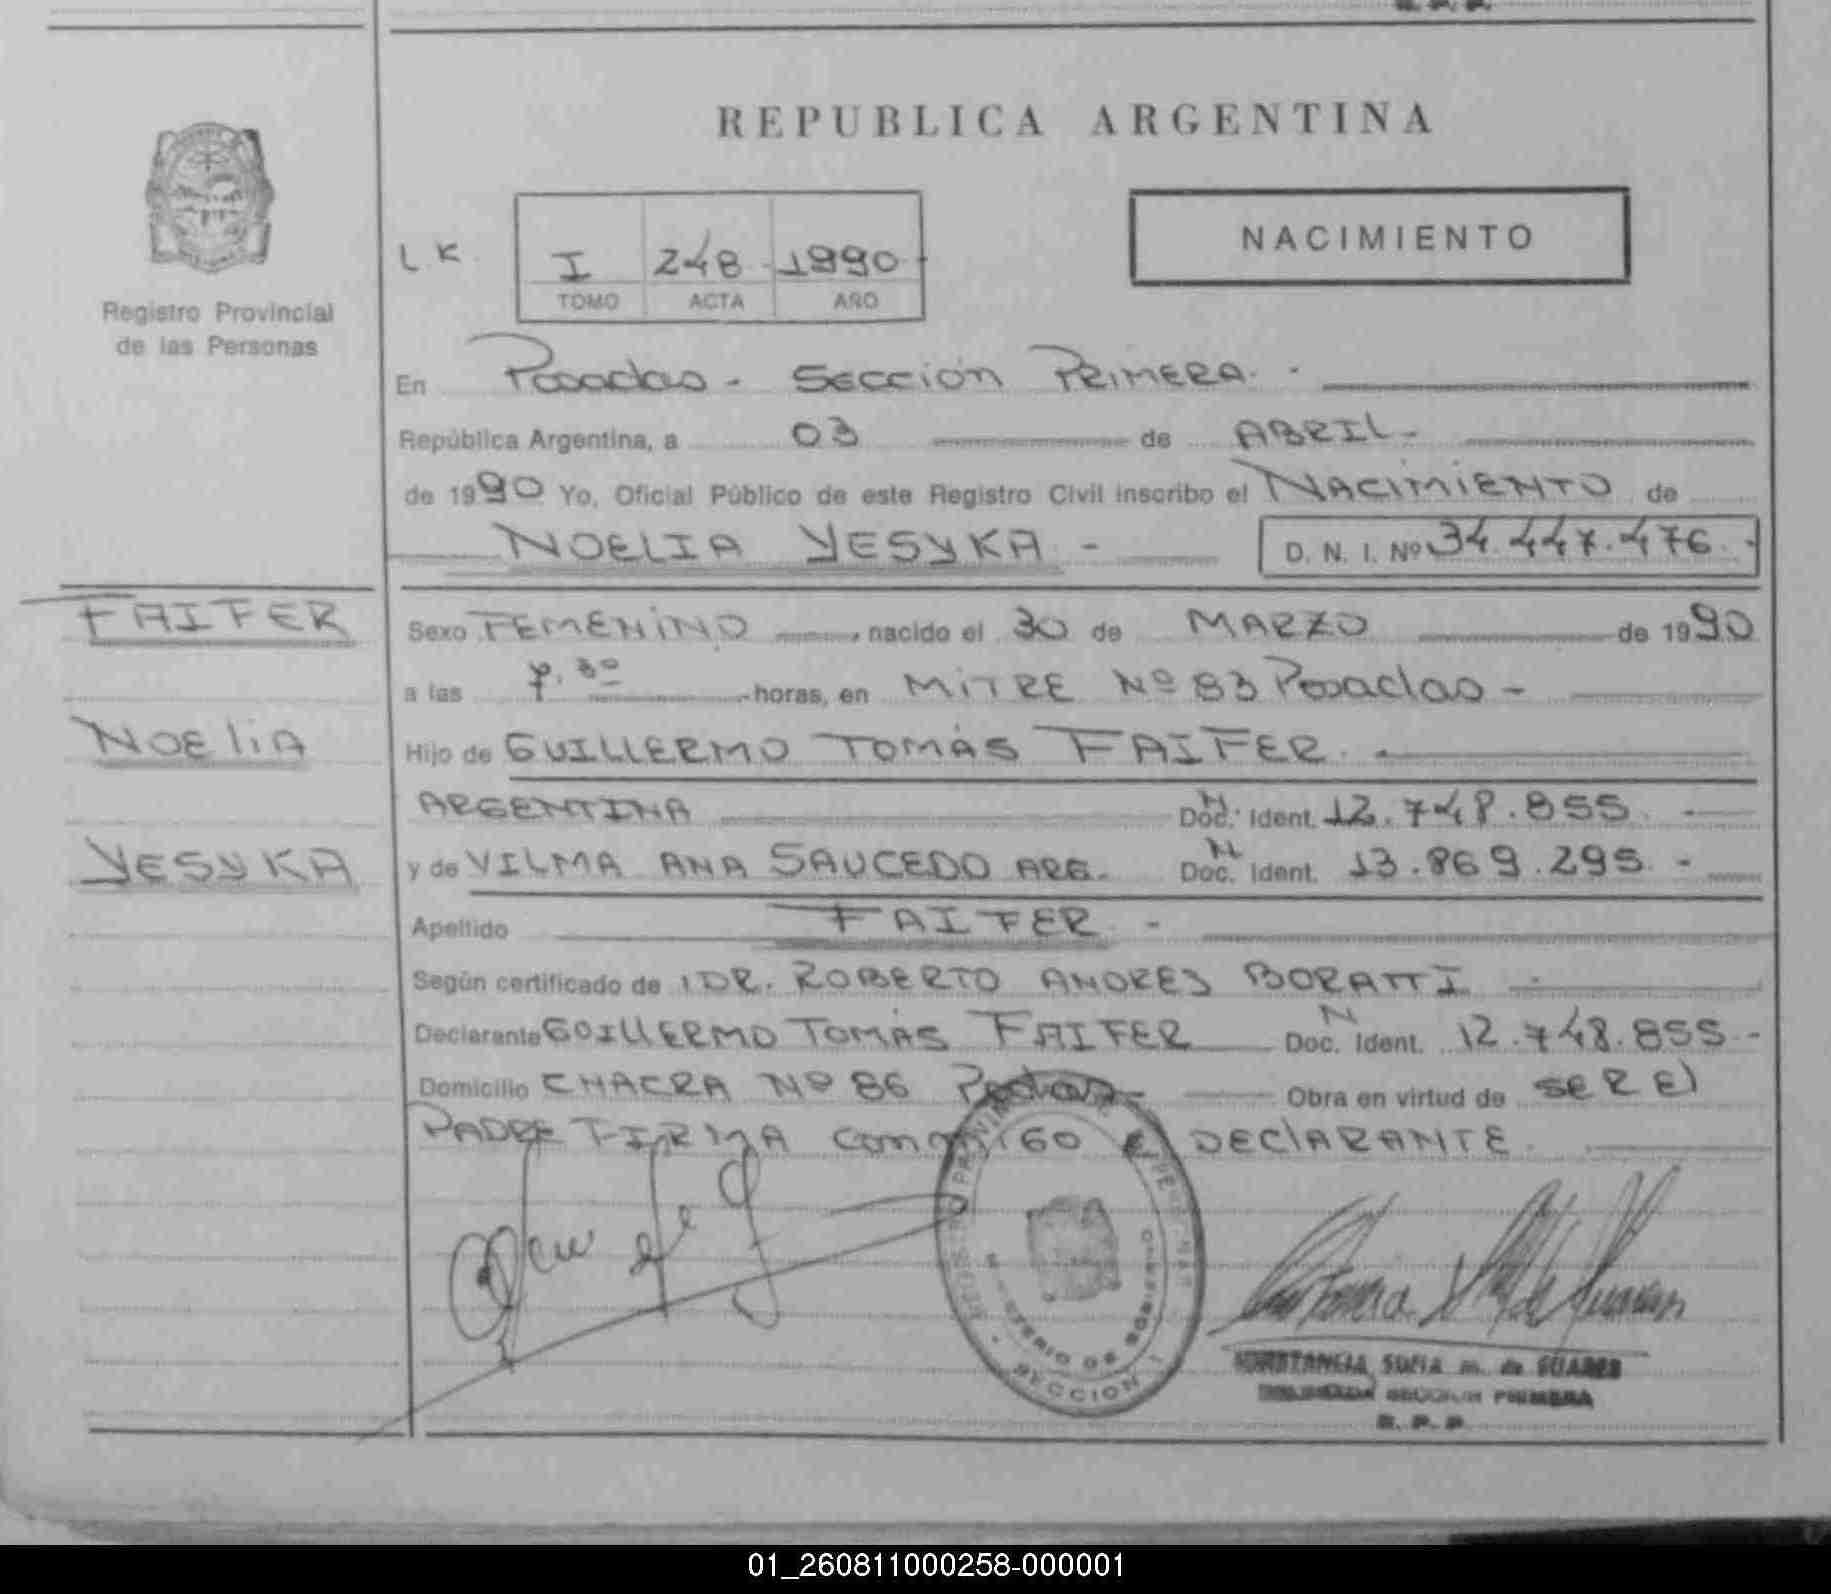 REPUBLICA ARGENTINA
Registro Provincial
de las Personas
L K
I 248 1990
TOMO ACTA AÑO
NACIMIENTO
En Posadas - Sección PRIMERA.
República Argentina, a 03 de ABRIL
de 1990 Yo, Oficial Público de este Registro Civil inscribo el NACIMIENTO de
NOELIA YESYKA - D. N. I. Nº 34.447.476.-
FAIFER
NOELIA
YESYKA
Sexo FEMENINO, nacido el 30 de MARZO de 1990
a las 7.30 horas, en MITRE Nº 83 Posadas -
Hijo de GUILLERMO TOMÁS FAIFER.
ARGENTINA Doc. Ident. 12.748.855.
y de VILMA ANA SAUCEDO ARG. Doc. Ident. 13.869.295.-
Apellido FAIFER.-
Según certificado de DR. ROBERTO ANDRES BORATTI
Declarante GUILLERMO TOMÁS FAIFER Doc. Ident. 12.748.855.-
Domicilio CHACRA Nº 86 Obra en virtud de SER El
PADRE FIRMA conmigo El DECLARANTE.
MINISTERIO DE GOBIERNO
SECCION
SOFIA m. de SUARES
SECCION PRIMERA
R. P. P.
01_260811000258-000001